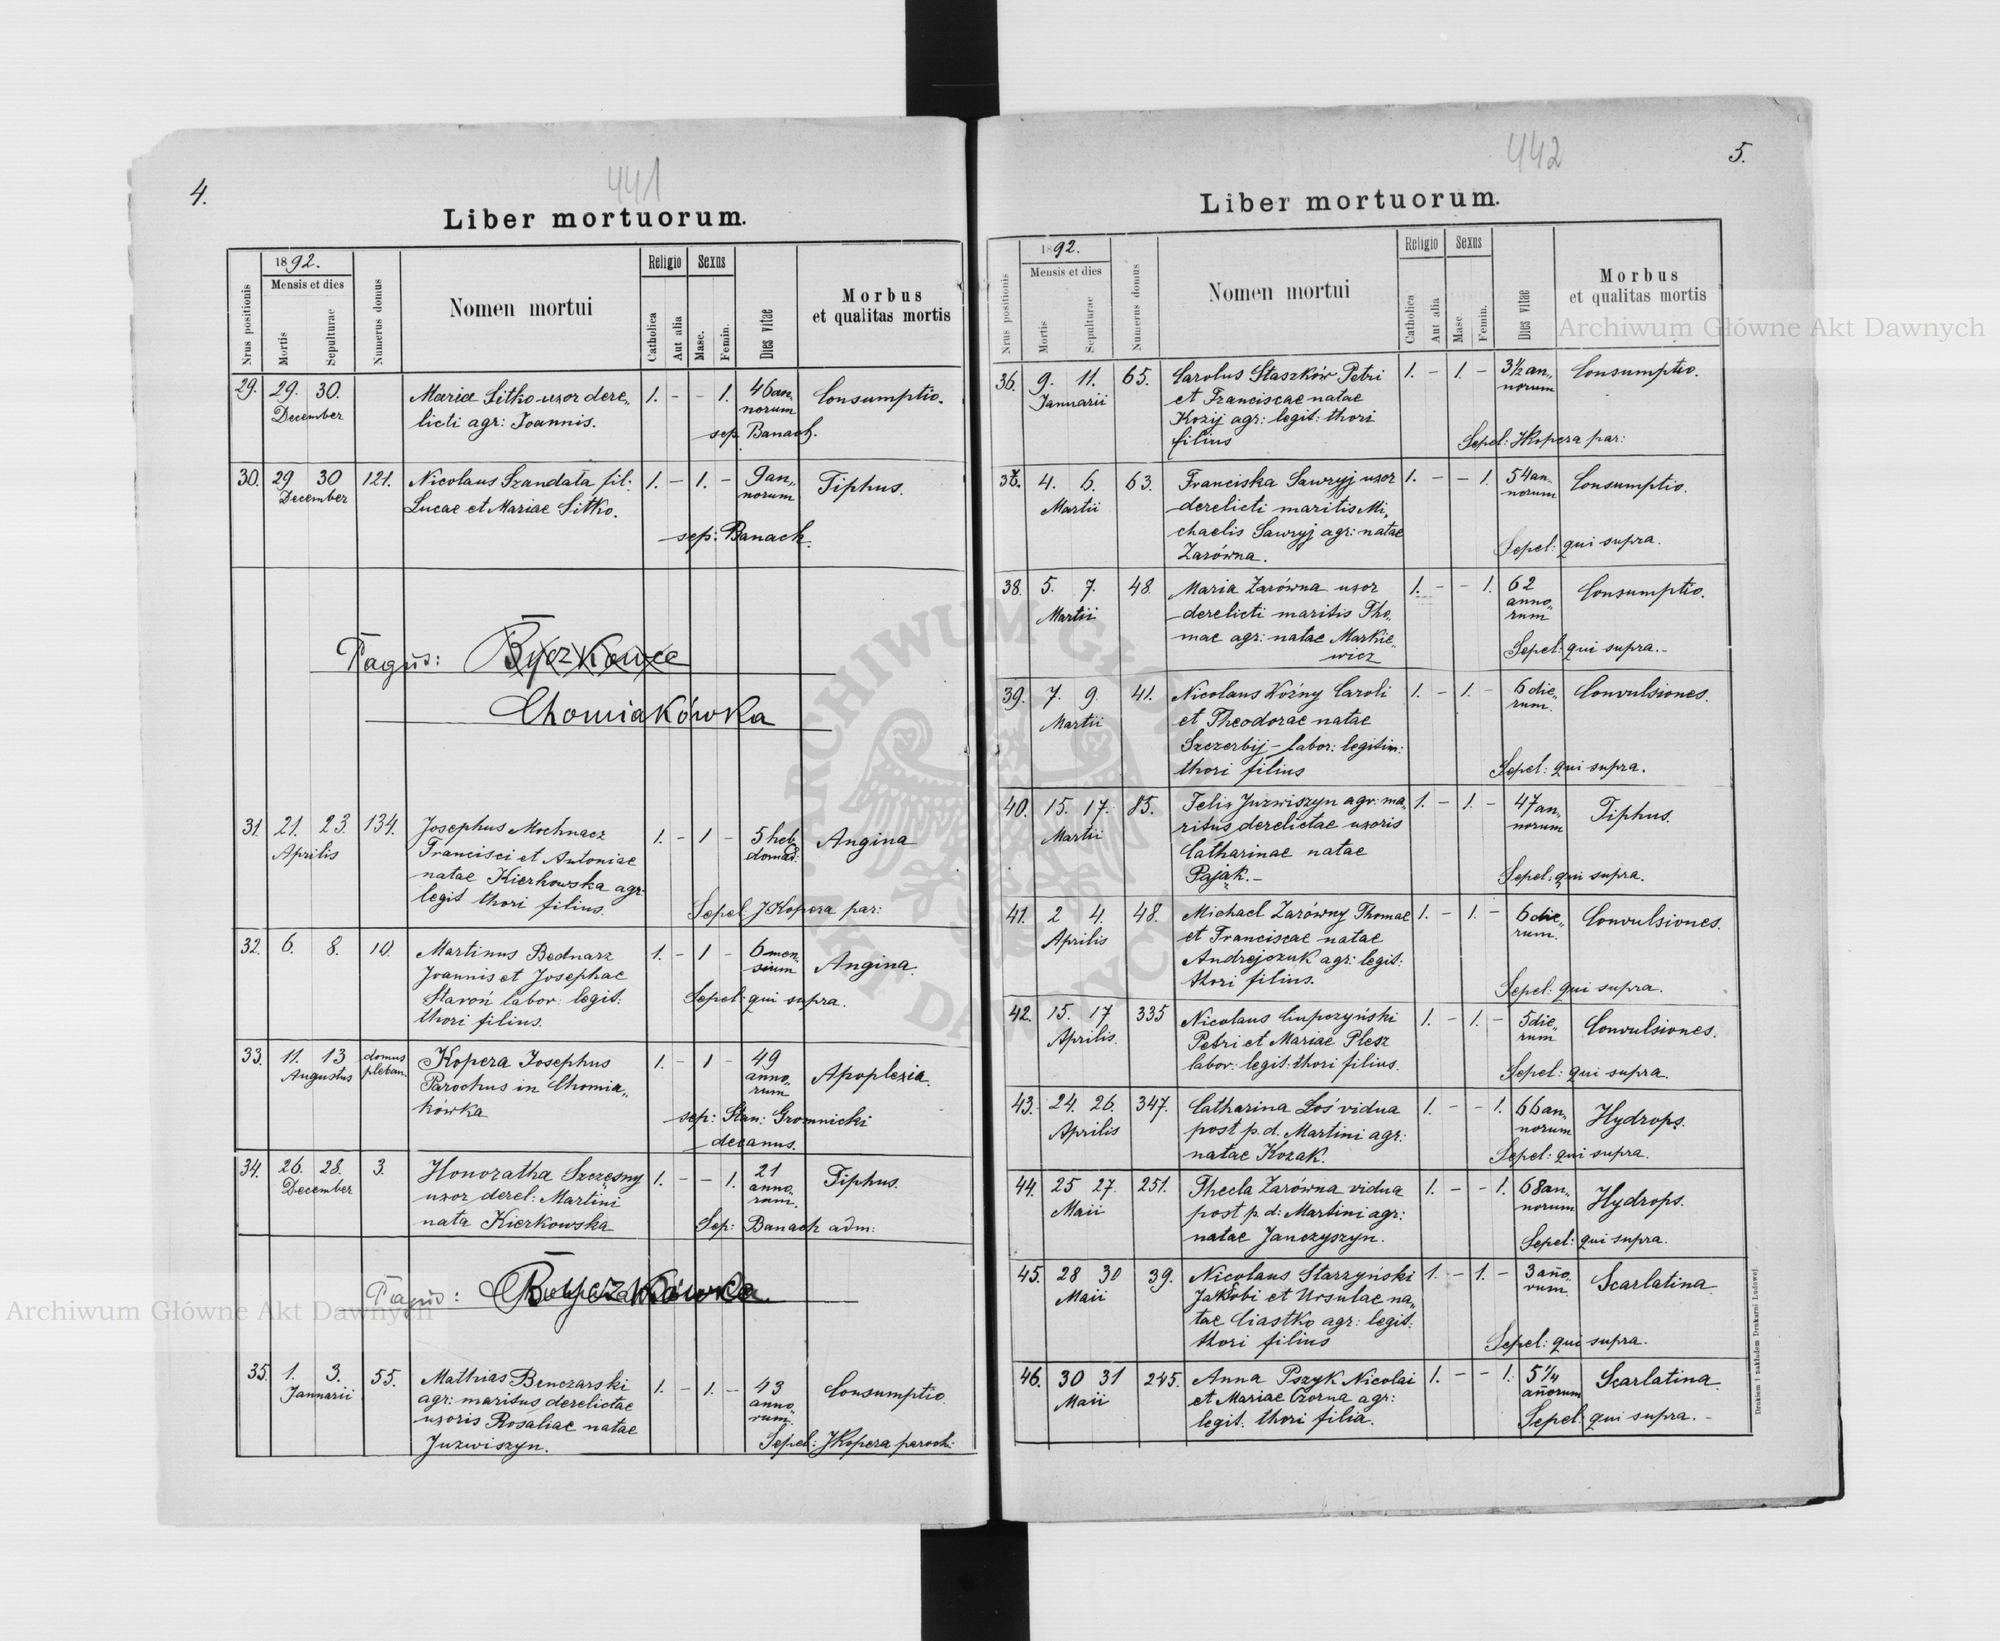 4.
441
Liber mortuorum.
Nrus positionis
1892.
Mensis et dies
Mortis
Sepulturae
Numerus domus
Nomen mortui
Religio
Catholica
Aut alia
Sexus
Masc.
Femin.
Dies vitae
Morbus
et qualitas mortis
29. 29. 30. Maria Sitko uxor dere„ 1. - - 1. 46 an„ Consumptio.
December licti agr: Joannis. norum
sep. Banach.
30. 29 30 121. Nicolaus Szandała fil: 1. - 1. - 9 an„ Tiphus.
December Lucae et Mariae Sitko. norum
sep: Banach.
Pagus: Byczkowce
Chomiakówka
31. 21. 23. 134. Josephus Mochnacz 1. - 1 - 5 heb Angina
Aprilis Francisci et Antoniae domad:
natae Kierkowska agr:
legit thori filius. Sepel: J Kopera par:
32. 6. 8. Martinus Bednarz 1. - 1 - 6 men„ Angina.
Joannis et Josephae sium
Staroń labor: legit: Sepel: qui supra.
thori filius.
33. 11. 13 domus Kopera Josephus 1. - 1 - 49 Apoplexia.
Augustus pleban. Parochus in Chomia„ anno„
kówka rum
sep: Stan: Gromnicki
decanus.
34. 26. 28. 3. Honoratha Szczęsny 1. - - 1. 21 Tiphus.
December uxor derel: Martini anno„
nata Kierkowska rum.
Sep: Banach adm:
Pagus:
35. 1. 3. 55. Mathias Benczarski 1. - 1. - 43 Consumptio.
Januarii agr: maritus derelictae anno„
uxoris Rosaliae natae rum.
Juzwiszyn. Sepel: J Kopera paroch:
442
5.
Liber mortuorum.
Nrus positionis
1892.
Mensis et dies
Mortis
Sepulturae
Numerus domus
Nomen mortui
Religio
Catholica
Aut alia
Sexus
Masc.
Femin.
Dies vitae
Morbus
et qualitas mortis
36. 9. 11. 65. Carolus Staszków Petri 1. - 1. - 3½ an„ Consumptio.
Januarii et Franciscae natae norum
Kozij agr: legit: thori
filius Sepel: J Kopera par:
37. 4. 6. 63. Franciska Sawryj uxor 1. - - 1. 54 an„ Consumptio.
Martii derelicti maritis Mi„ norum
chaelis Sawryj agr: natae
Zarówna. Sepel: qui supra.
38. 5. 7. 48. Maria Zarówna uxor 1. - - 1. 62 Consumptio.
Martii derelicti maritis Tho„ anno„
mae agr: natae Markie„ rum
wicz Sepel: qui supra.-
39. 7. 9. 41. Nicolaus Koźny Caroli 1. - 1. - 6 die„ Convulsiones.
Martii et Theodorae natae rum.
Szczerbij - labor: legitim:
thori filius Sepel: qui supra.
40. 15. 17. 85. Felix Juzwiszyn agr: ma„ 1. - 1. - 47 an„ Tiphus.
Martii ritus derelictae uxoris norum
Catharinae natae
Pająk.- Sepel: qui supra.
41. 2 4. 48. Michael Zarówny Thomae 1. - 1. - 6 die„ Convulsiones.
Aprilis et Franciscae natae rum.
Andrejczuk agr: legit:
thori filius. Sepel: qui supra.
42. 15. 17 335 Nicolaus Cupczyński 1. - 1. - 5 die„ Convulsiones.
Aprilis. Petri et Mariae Plesz rum
labor: legit: thori filius. Sepel: qui supra.
43. 24. 26. 347. Catharina Łoś vidua 1. - - 1. 66 an„ Hydrops.
Aprilis post p. d. Martini agr: norum
natae Kozak. Sepel: qui supra.
44. 25 27. 251. Thecla Zarówna vidua 1. - - 1. 68 an„ Hydrops.
Maii post p. d: Martini agr: norum
natae Janczyszyn. Sepel: qui supra.
45. 28 30 39. Nicolaus Starzyński 1. - 1. - 3 año„ Scarlatina.
Maii Jakobi et Ursulae na„ rum.
tae Ciastko agr: legit:
thori filius Sepel: qui supra.
46. 30 31 245. Anna Pszyk Nicolai 1. - - 1. 5¼ Scarlatina.
Maii et Mariae Czorna agr: añorum
legit. thori filia. Sepel: qui supra.-
Drukiem i nakładem Drukarni Ludowej
Archiwum Główne Akt Dawnych
Archiwum Główne Akt Dawnych
ARCHIWUM GŁÓWNE AKT DAWNYCH